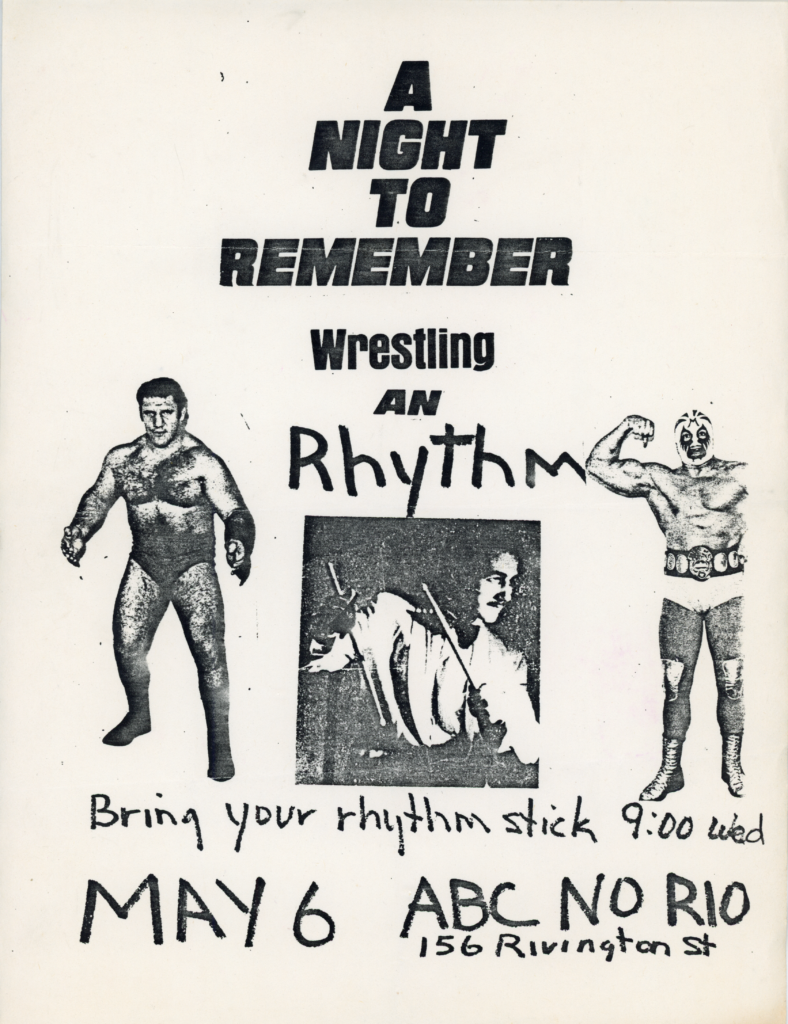 A
NIGHT
TO
REMEMBER
Wrestling
AN
Rhythm
Bring your rhythm stick 9:00 Wed
MAY 6 ABC NO RIO
156 Rivington St